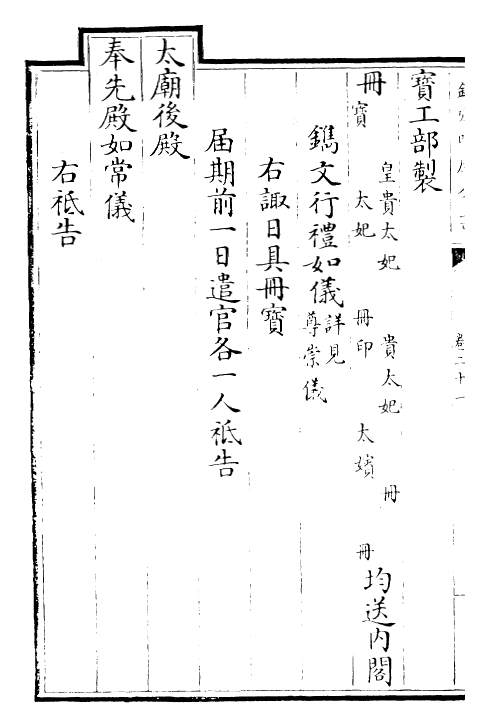 卷二十一
寶工部製
冊
皇貴太妃 貴太妃 冊
寶 太妃 冊印 太嬪 冊
均送內閣
鐫文行禮如儀
詳見
尊崇儀
右諏日具冊寶
届期前一日遣官各一人祗告
太廟後殿
奉先殿如常儀
右祗告